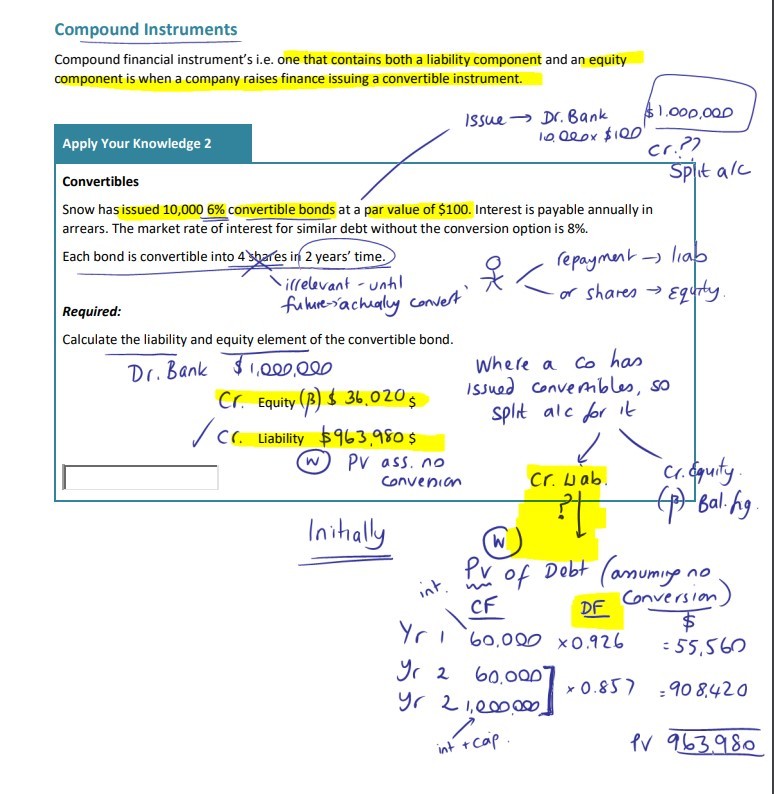 Compound Instruments
Compound financial instrument's i.e. one that contains both a liability component and an equity
component is when a company raises finance issuing a convertible instrument.
Issue → Dr. Bank $1,000,000
10,000 x $100
Cr. ??
Split a/c
Apply Your Knowledge 2
Convertibles
Snow has issued 10,000 6% convertible bonds at a par value of $100. Interest is payable annually in
arrears. The market rate of interest for similar debt without the conversion option is 8%.
Each bond is convertible into 4 shares in 2 years' time.
repayment → liab
or shares → Equity.
irrelevant - until
future → actually convert
Required:
Calculate the liability and equity element of the convertible bond.
Dr. Bank $1,000,000
Cr. Equity (β) $ 36,020 $
✓ Cr. Liability $963,980 $
(W) PV ass. no
conversion
Where a co has
issued convertibles, so
split a/c for it
Cr. Liab.
?
Cr. Equity.
(β) Bal. fig.
Initially
(W)
PV of Debt (assuming no
Conversion)
int. CF DF $
Yr 1 60,000 x0.926 = 55,560
Yr 2 60,000
Yr 2 1,000,000 x 0.857 = 908,420
int + cap.
PV 963,980